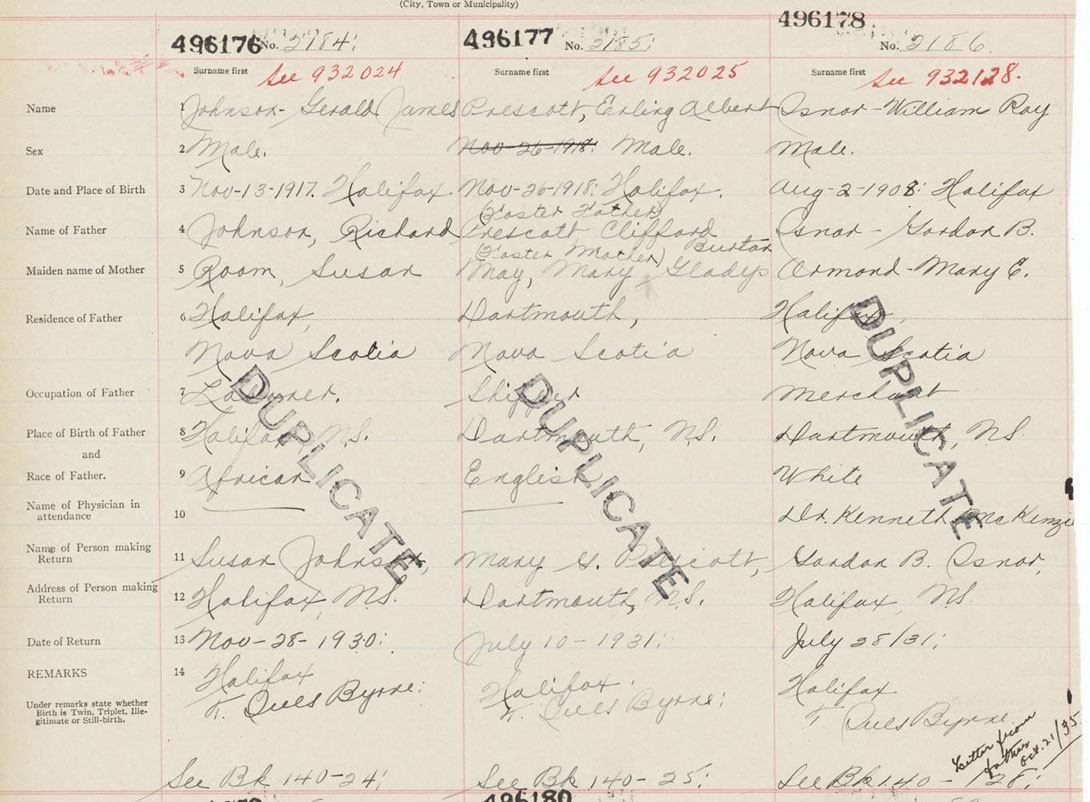 (City, Town or Municipality)
496176 No. 2184: 496177 No. 2185: 496178 No. 2186.
Surname first See 932024 Surname first See 932025 Surname first See 932128.
Name 1 Johnson- Gerald James Prescott, Erling Albert Isnor - William Roy
Sex 2 Male. Nov-26-1918: Male. Male.
Date and Place of Birth 3 Nov-13-1917. Halifax Nov-26-1918: Halifax. Aug-2-1908: Halifax
(Foster Father)
Name of Father 4 Johnson, Richard Prescott Clifford Burton Isnor - Gordon B.
(Foster Mother)
Maiden name of Mother 5 Room, Susan May, Mary Gladys Ormond - Mary E.
Residence of Father 6 Halifax, Dartmouth, Halifax,
Nova Scotia Nova Scotia Nova Scotia
Occupation of Father 7 Labourer. Shipper Merchant
Place of Birth of Father 8 Halifax N.S. Dartmouth, N.S. Dartmouth, N.S
and
Race of Father. 9 African English White
Name of Physician in
attendance 10 Dr. Kenneth McKenzie
Name of Person making
Return 11 Susan Johnson, Mary G. Prescott, Gordon B. Isnor,
Address of Person making
Return 12 Halifax, N.S. Dartmouth, N.S. Halifax, N.S.
Date of Return 13 Nov-28-1930: July 10-1931: July 28/31:
REMARKS 14 Halifax Halifax. Halifax
Under remarks state whether
Birth is Twin, Triplet, Ille-
gitimate or Still-birth.
Byrne: Byrne: Byrne
Letter from
father
Oct. 21/35
See Bk 140-24: See Bk 140-25: See Bk 140- 28:
DUPLICATE DUPLICATE DUPLICATE
496180